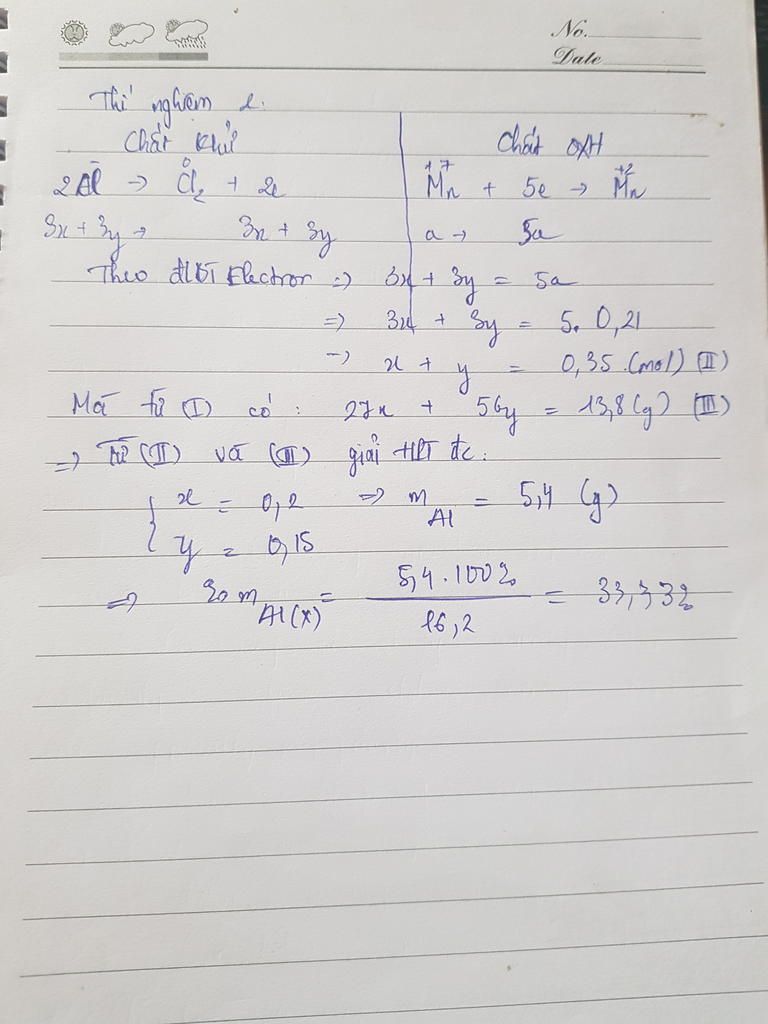 No.
Date
Thí nghiệm 2:
Chất khử
Chất OXH
2Cl⁻ → Cl₂⁰ + 2e
Mn⁺⁷ + 5e → Mn⁺²
3x + 3y → 3x + 3y
a → 5a
Theo ĐLBT Electron => 3x + 3y = 5a
=> 3x + 3y = 5. 0,21
=> x + y = 0,35 (mol) (II)
Mà từ (I) có: 27x + 56y = 13,8 (g) (III)
=> Từ (II) và (III) giải HPT đc:
{ x = 0,2 => m Al = 5,4 (g)
y = 0,15
=> % m Al(X) = 5,4 . 100% / 16,2 = 33,33%